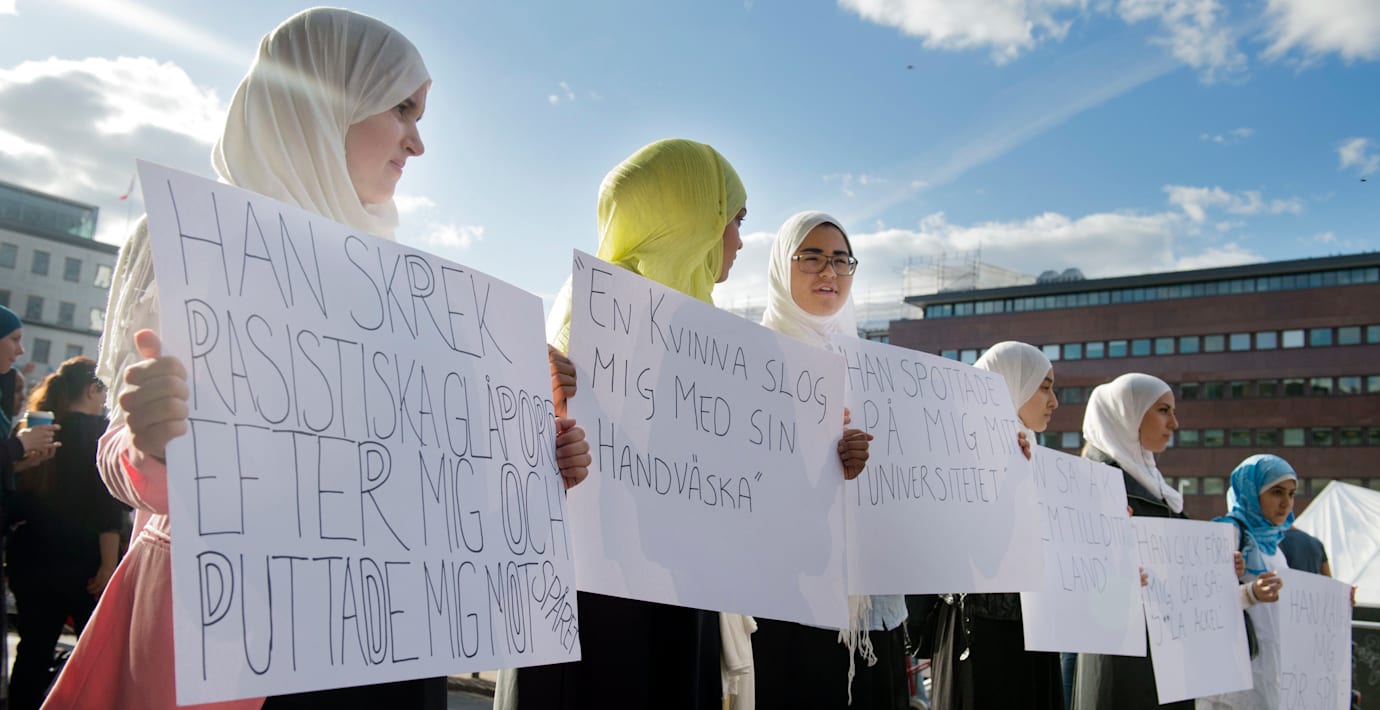 HAN SKREK
RASISTISKA GLÅPORD
EFTER MIG OCH
PUTTADE MIG MOT
SPÅRET
"EN KVINNA SLOG
MIG MED SIN
HANDVÄSKA"
HAN SPOTTADE
PÅ MIG MITT
I UNIVERSITETET"
SA ÅK
TILL DITT
LAND"
HAN GICK FÖRB
MIG OCH SA
ÄCKEL"
HAN
MIG
FÖR